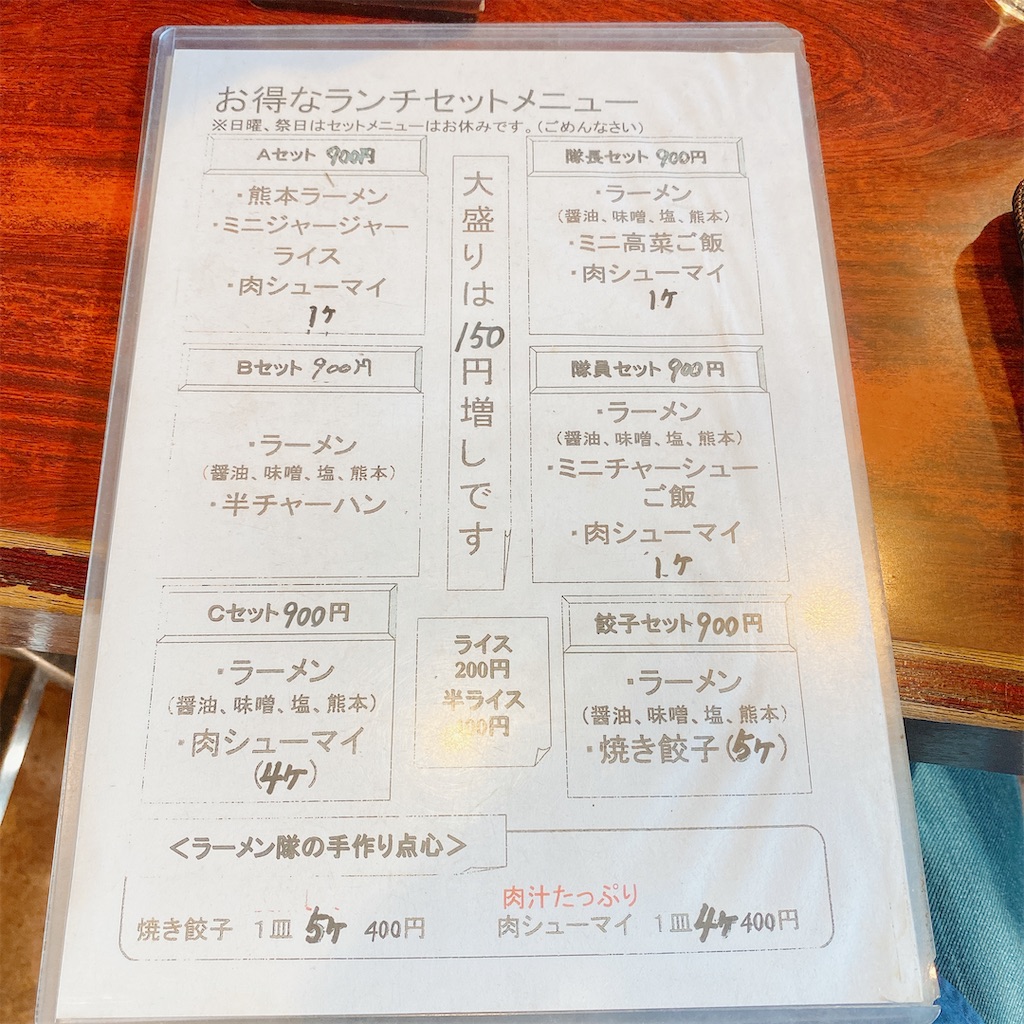 お得なランチセットメニュー
※日曜、祭日はセットメニューはお休みです。(ごめんなさい)
Aセット 900円
・熊本ラーメン
・ミニジャージャー
ライス
・肉シューマイ
1ケ
Bセット 900円
・ラーメン
(醤油、味噌、塩、熊本)
・半チャーハン
Cセット 900円
・ラーメン
(醤油、味噌、塩、熊本)
・肉シューマイ
(4ケ)
大盛りは150円増しです
ライス
200円
半ライス
円
隊長セット 900円
・ラーメン
(醤油、味噌、塩、熊本)
・ミニ高菜ご飯
・肉シューマイ
1ケ
隊員セット 900円
・ラーメン
(醤油、味噌、塩、熊本)
・ミニチャーシュー
ご飯
・肉シューマイ
1ケ
餃子セット 900円
・ラーメン
(醤油、味噌、塩、熊本)
・焼き餃子(5ケ)
<ラーメン隊の手作り点心>
焼き餃子 1皿 5ケ 400円
肉汁たっぷり
肉シューマイ 1皿 4ケ 400円